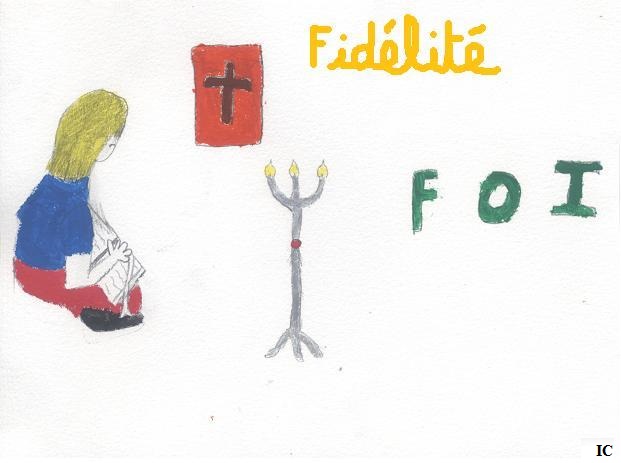 Fidélité
FOI
IC